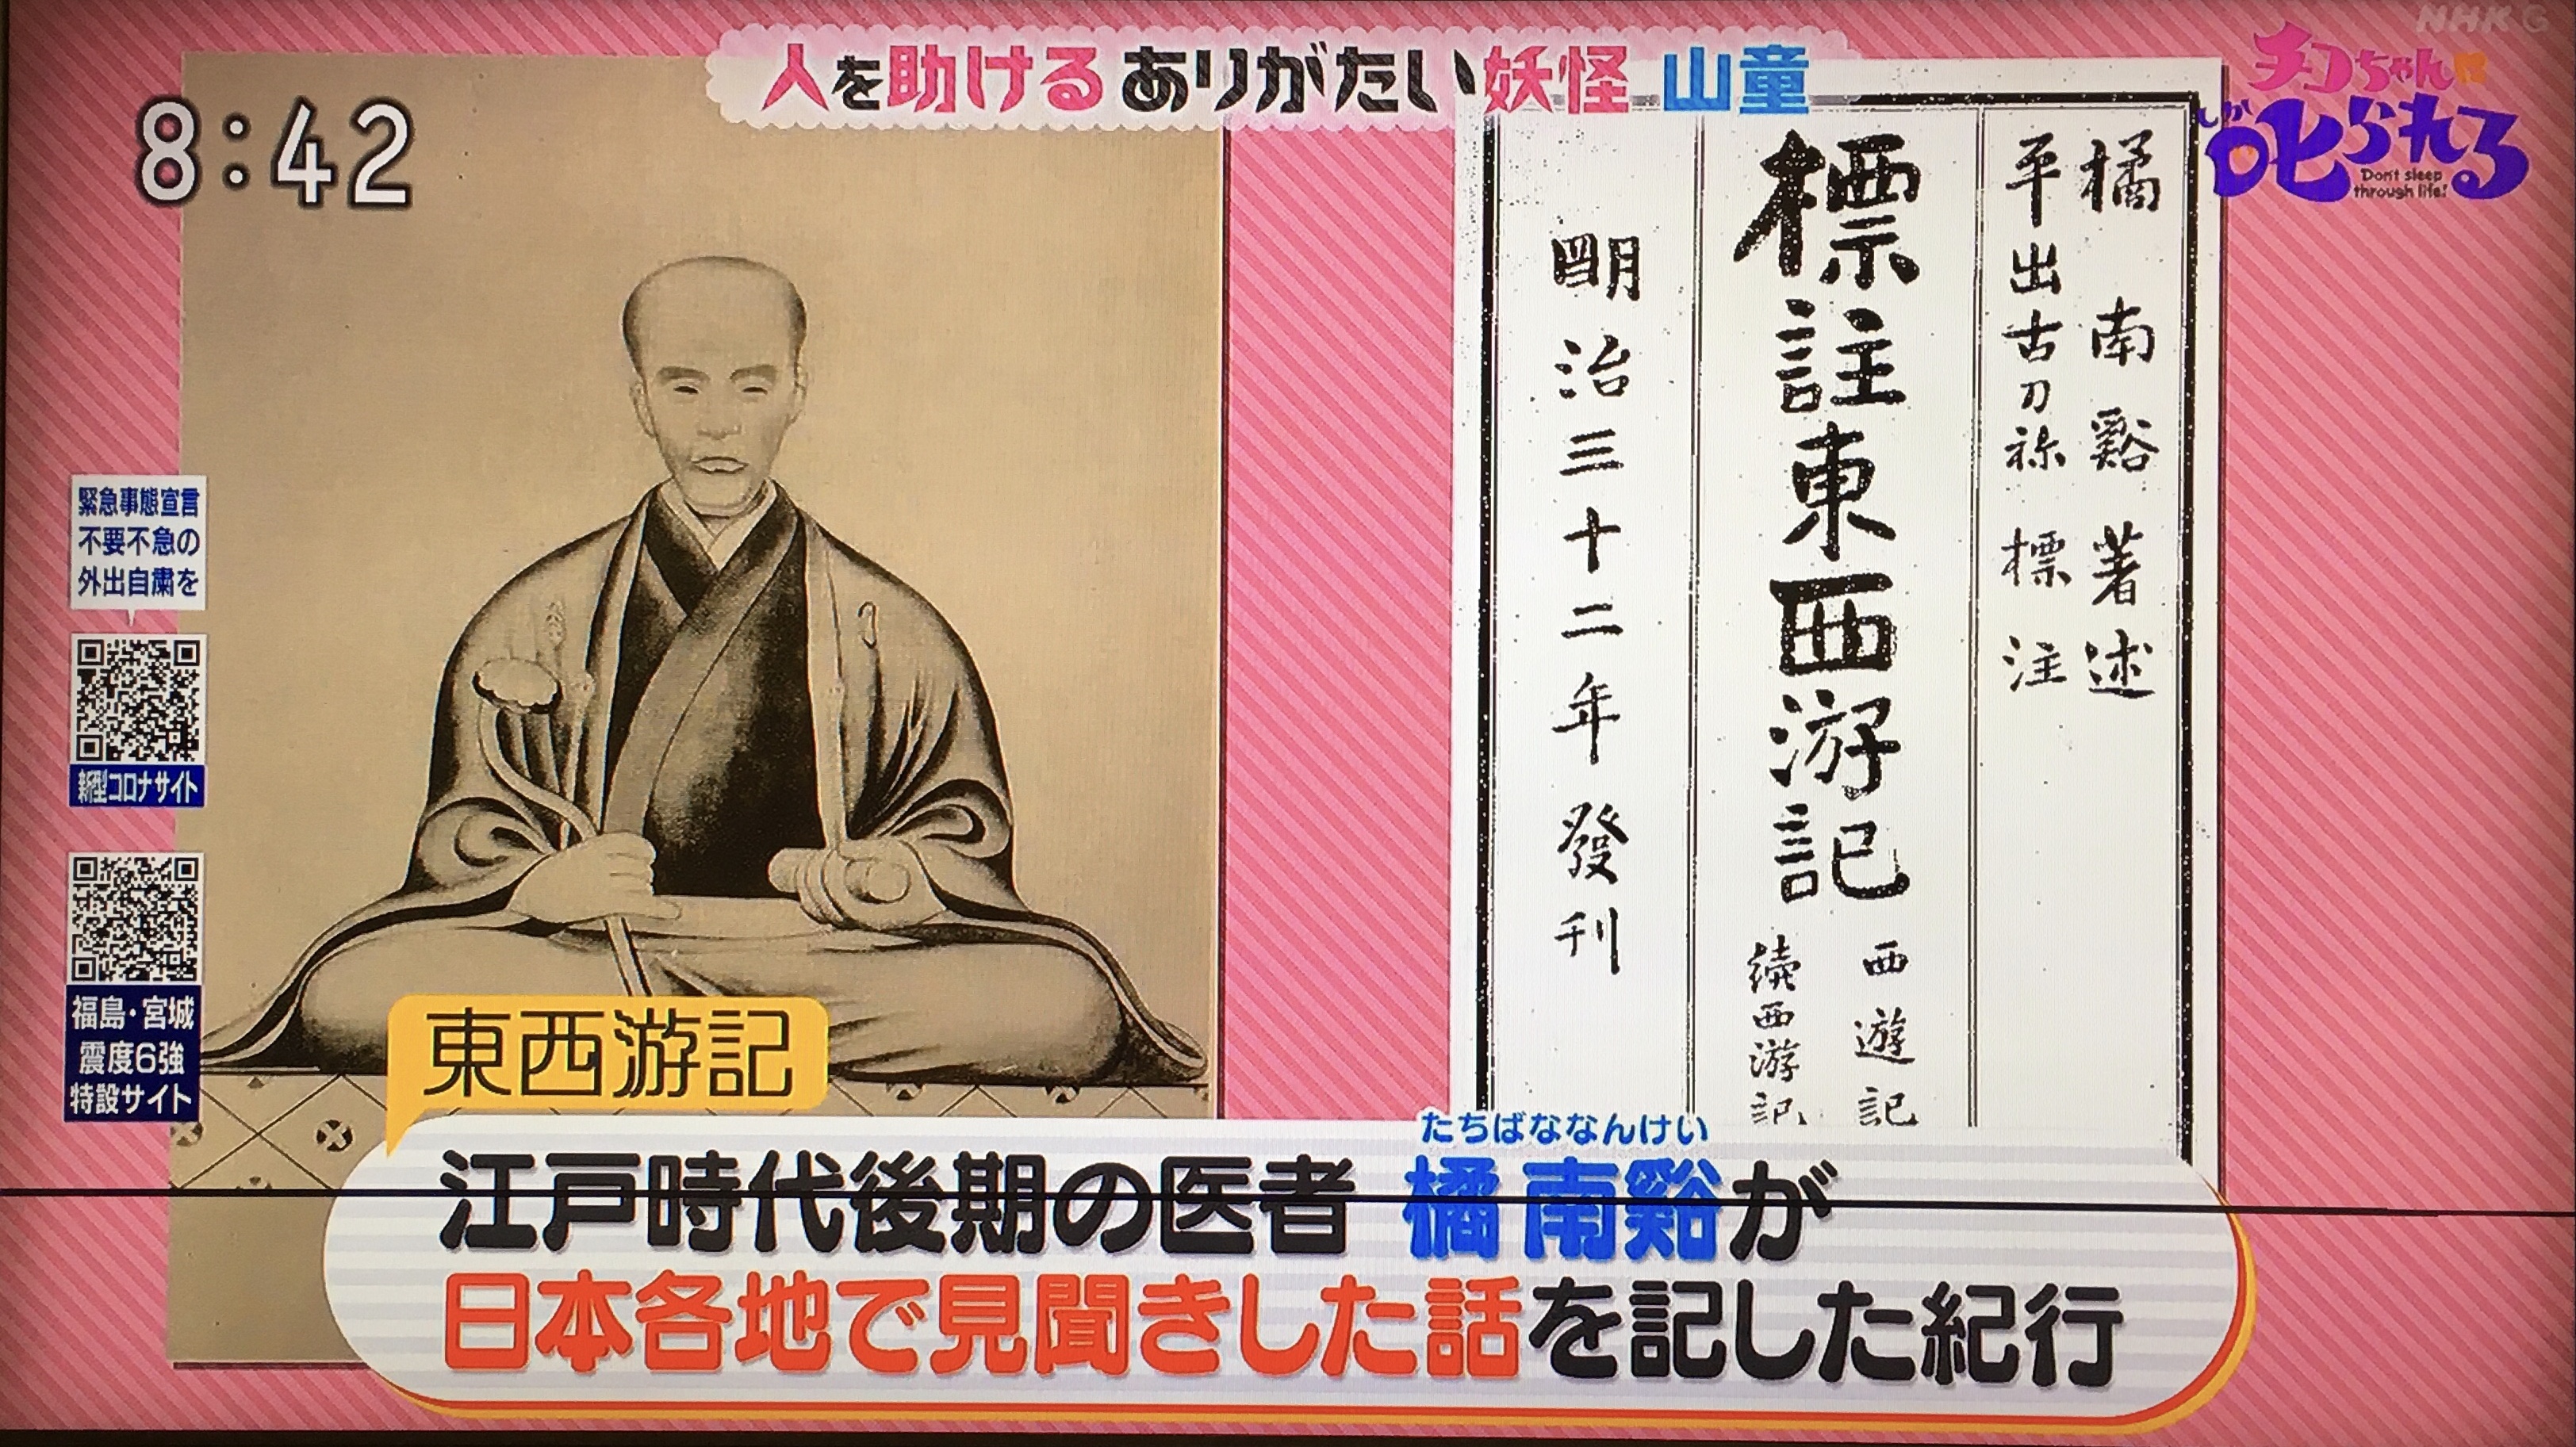 NHK G
人を助ける ありがたい妖怪 山童
8:42
チコちゃんに
叱られる
しか
Don't sleep
through life!
橘南谿著述
平出古刀祢標注
標註東西游記
西遊記
續西游記
明治三十二年發刊
緊急事態宣言
不要不急の
外出自粛を
新型コロナサイト
福島・宮城
震度6強
特設サイト
東西游記
たちばななんけい
江戸時代後期の医者 橘 南谿が
日本各地で見聞きした話を記した紀行